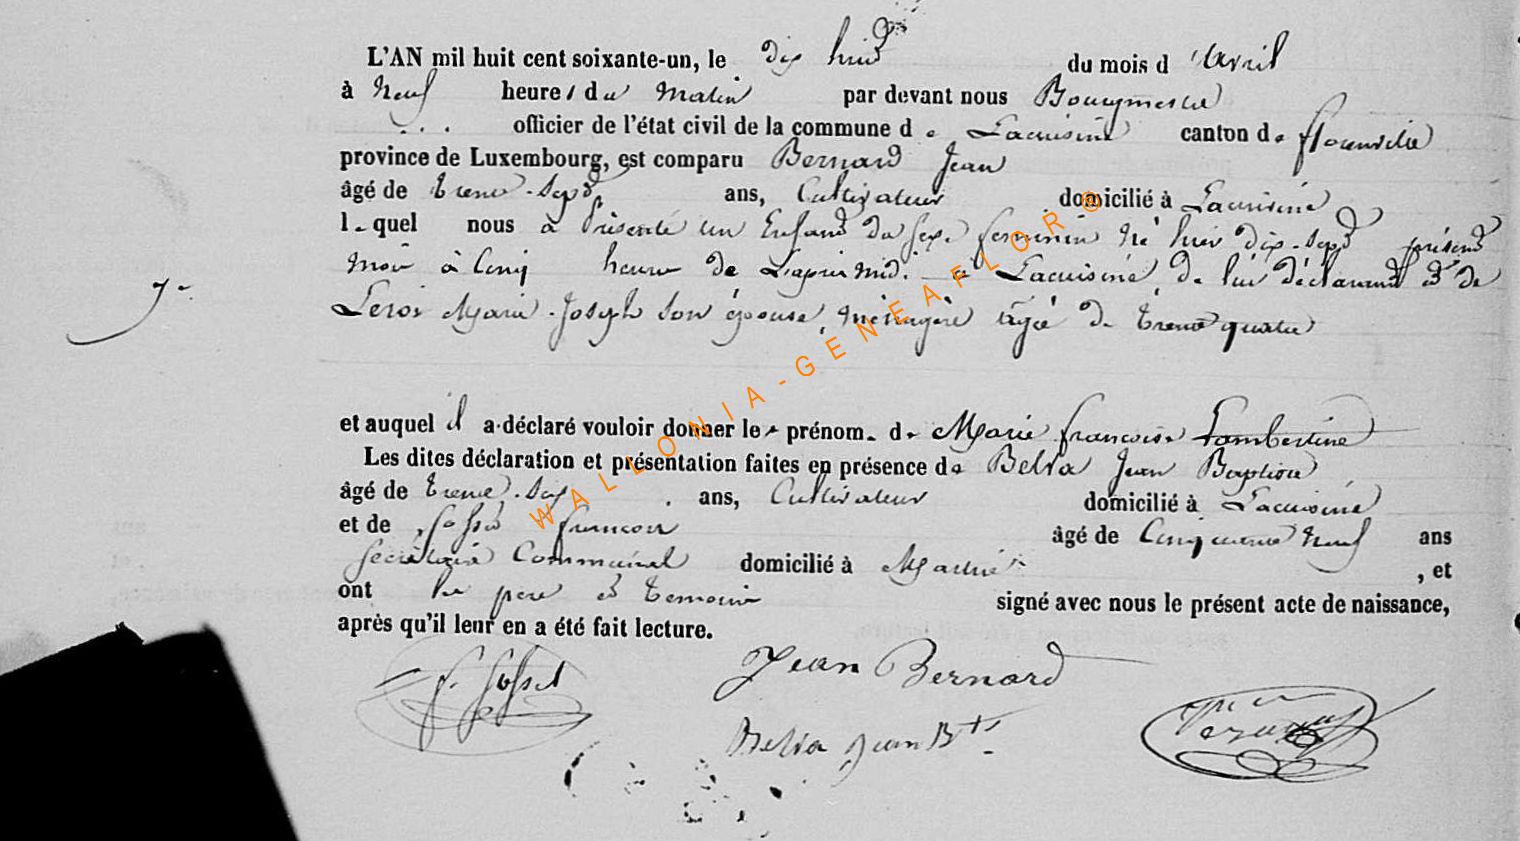 L'AN mil huit cent soixante-un, le dix huit du mois d'avril
à Neuf heures du Matin par devant nous Bourgmestre
officier de l'état civil de la commune de Lacuisine canton de florenville
province de Luxembourg, est comparu Bernard Jean
âgé de trente-sept ans, Cultivateur domicilié à Lacuisine
lequel nous a Présenté un Enfant du sexe feminin Né hier dix-sept présent
mois à Cinq heures de L'après midi à Lacuisine, de lui déclarant et de
Leroi Marie-Joseph son épouse, ménagère âgée de trente quatre
et auquel il a déclaré vouloir donner les prénom. de Marie françoise Lambertine
Les dites déclaration et présentation faites en présence de Belva Jean Baptiste
âgé de trente-six ans, Cultivateur domicilié à Lacuisine
et de françois âgé de Cinquante Neuf ans
secrétaire Communal domicilié à , et
ont les père et témoins signé avec nous le présent acte de naissance,
après qu'il leur en a été fait lecture.
Jean Bernard
Belva Jean Bte
WALLONIA-GENEAFLOR®